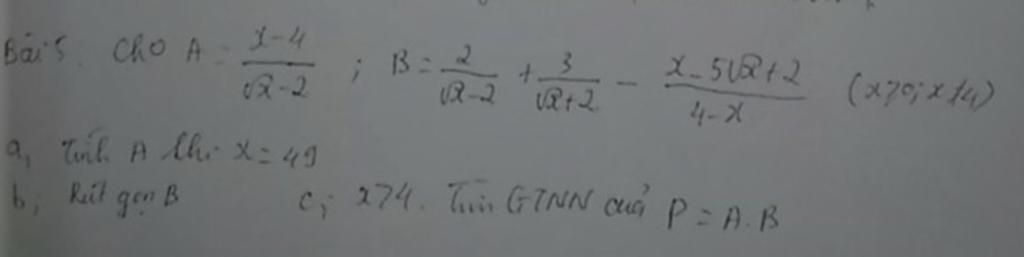 Bài 5. Cho A = x-4/√x-2 ; B = 2/√x-2 + 3/√x+2 - x-5√x+2/4-x (x>0; x≠4)
a, Tính A khi x = 49
b, Rút gọn B c, x>4. Tìm GTNN của P = A.B